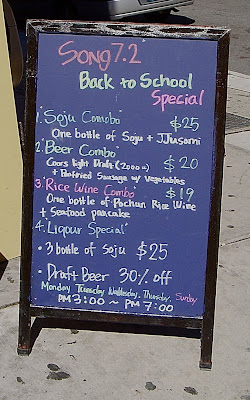 Song 7.2
Back to School
Special
1. Soju Comobo $25
One bottle of Soju + JJusomi
2. Beer Combo $20
Coors light Draft (2000cc)
+ Panfried Sausage w/ Vegetables
3. Rice Wine Combo $19
One bottle of Pochun Rice Wine
+ Seafood pancake
4. Liqour Special
• 3 bottle of Soju $25
• Draft Beer 30% off
Monday Tuesday Wednesday, Thursday, Sunday
PM 3:00 ~ PM 7:00